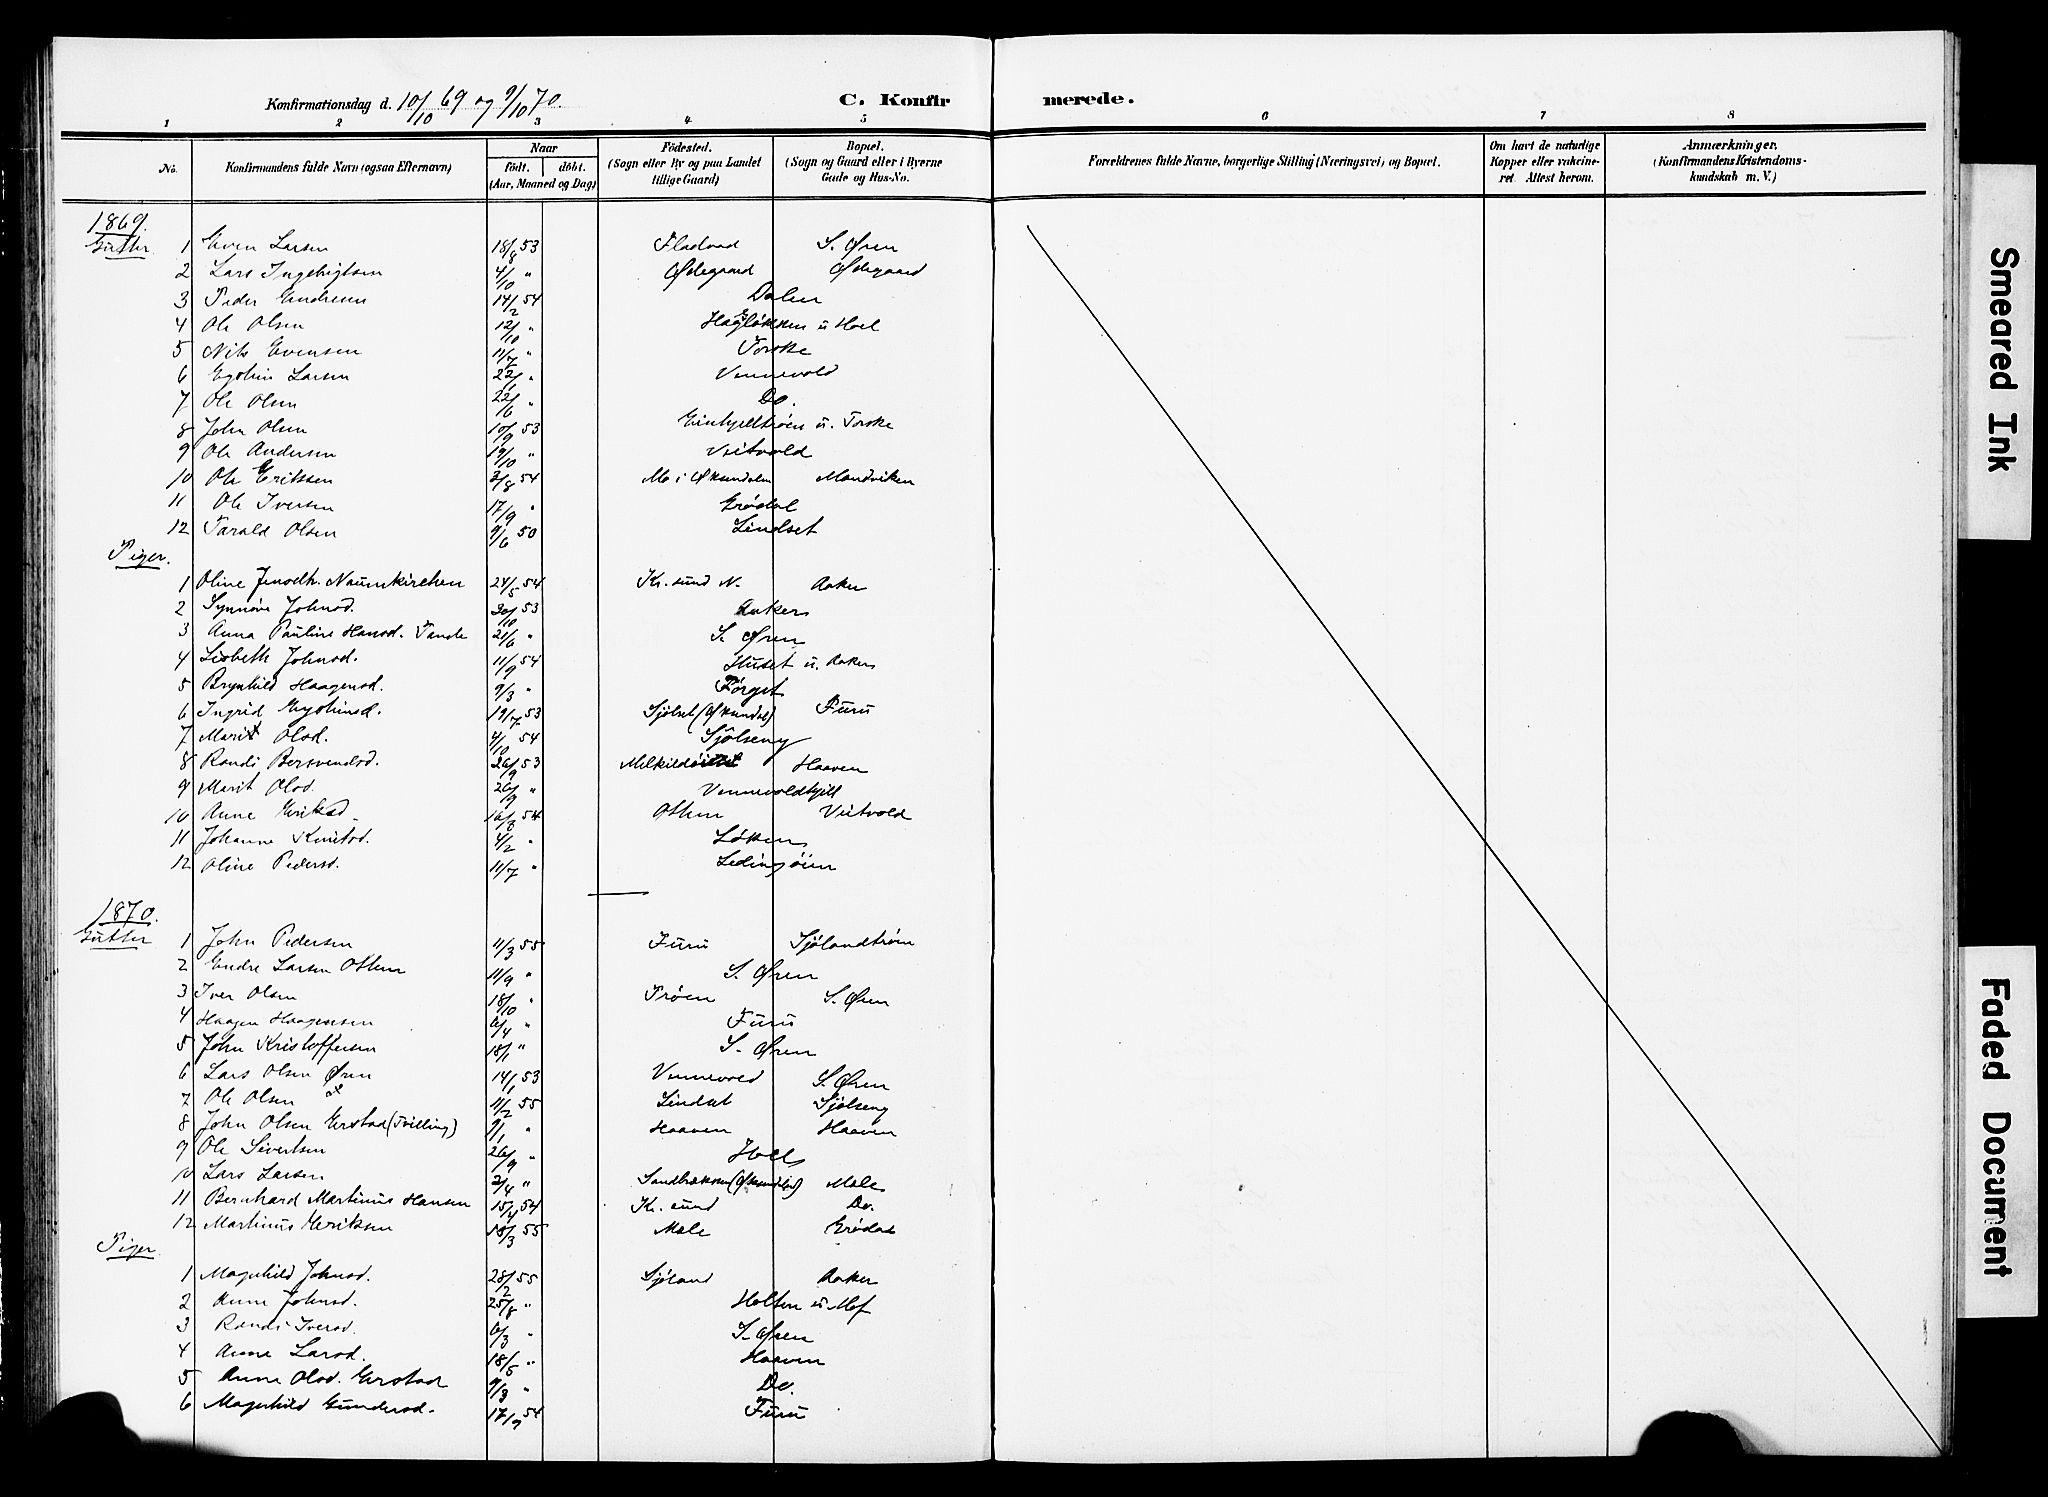 Konfirmationsdag d. 10/10 69 og 9/10 70.
C. Konfir merede.
1 2 3 4 5 6 7 8
No. Konfirmandens fulde Navn (ogsaa Efternavn) Naar Født. døbt. (Aar, Maaned og Dag) Fødested. (Sogn eller By og paa Landet tillige Gaard) Bopæl. (Sogn og Gaard eller i Byerne Gade og Hus-No. Forældrenes fulde Navne, borgerlige Stilling (Næringsvei) og Bopæl. Om havt de naturlige Kopper eller vakcineret. Attest herom. Anmærkninger. (Konfirmandens Kristendomskundskab m. V.)
1869.
Gutter 1 Even Larsen 18/8 53 Fladvad S. Øren
2 Lars Ingebrigtsen 4/10 " Ødegaard Ødegaard
3 Peder Endresen 14/2 54 Dalen
4 Ole Olsen 12/10 " u Hoel
5 Nils Evensen 11/7 " Torske
6 Larsen 22/1 " Vennevold
7 Ole Olsen 22/6 " Do.
8 John Olsen 10/9 53 u. Torske
9 Ole Andersen 19/10 " Veitvold
10 Ole Eriksen 3/8 54 Mo i Øksendalen
11 Ole Iversen 17/9 " Grødal
12 Tarald Olsen 9/6 50 Lindset
Piger.
1 Oline Naumkirchen 24/5 54 Kr. sund N. Aaker
2 Synnøve Johnsd. 30/10 53 Aaker
3 Anna Pauline Hansd. Tande 21/6 " S. Øren
4 Lisbeth Johnsd. 11/9 54 Huset u. Aaker
5 Brynhild Haagensd. 9/3 "
6 Ingrid 19/7 53 Sjølset (Øksendal) Furu
7 Marit Olsd. 4/10 54 Sjølseng
8 Randi Bersvendsd. 26/9 53 Haaven
9 Marit Olsd. 26/9 " Vennevoldhjell
10 Anne Eriksd. 16/8 54 Othem Veitvold
11 Johanne Knutsd. 4/2 " Løkken
12 Oline Pedersd. 11/7 "
1870.
Gutter 1 John Pedersen 11/3 55 Furu Sjølandtrøen
2 Endre Larsen Othem 11/9 " S. Øren
3 Iver Olsen 18/10 " Trøen S. Øren
4 Haagen Haagensen 6/4 " Furu
5 John Kristoffersen 18/1 " S. Øren
6 Lars Olsen Øren 14/1 53 Vennevold S. Øren
7 Ole Olsen 11/2 55 Lindset Sjølseng
8 John Olsen Grstad (Tvilling) 9/1 " Haaven Haaven
9 Ole Sivertsen 26/9 " Hoel
10 Lars Larsen 2/4 " Sandbækken (Øksendalen) Mæle
11 Bernhard Martinus Hansen 15/4 54 Kr. sund Do.
12 Martinus Eriksen 18/3 55 Mæle Grødal
Piger
1 Magnhild Johnsd. 28/2 55 Sjøland Aaker
2 Anne Johnsd. 25/8 " Holten u Hof
3 Randi Iversd. 6/3 " S. Øren
4 Anne Larsd. 18/5 " Haaven
5 Anne Olsd. Grstad 9/3 " Do.
6 Magnhild Gundersd. 17/9 54 Furu
Smeared Ink
Faded Document